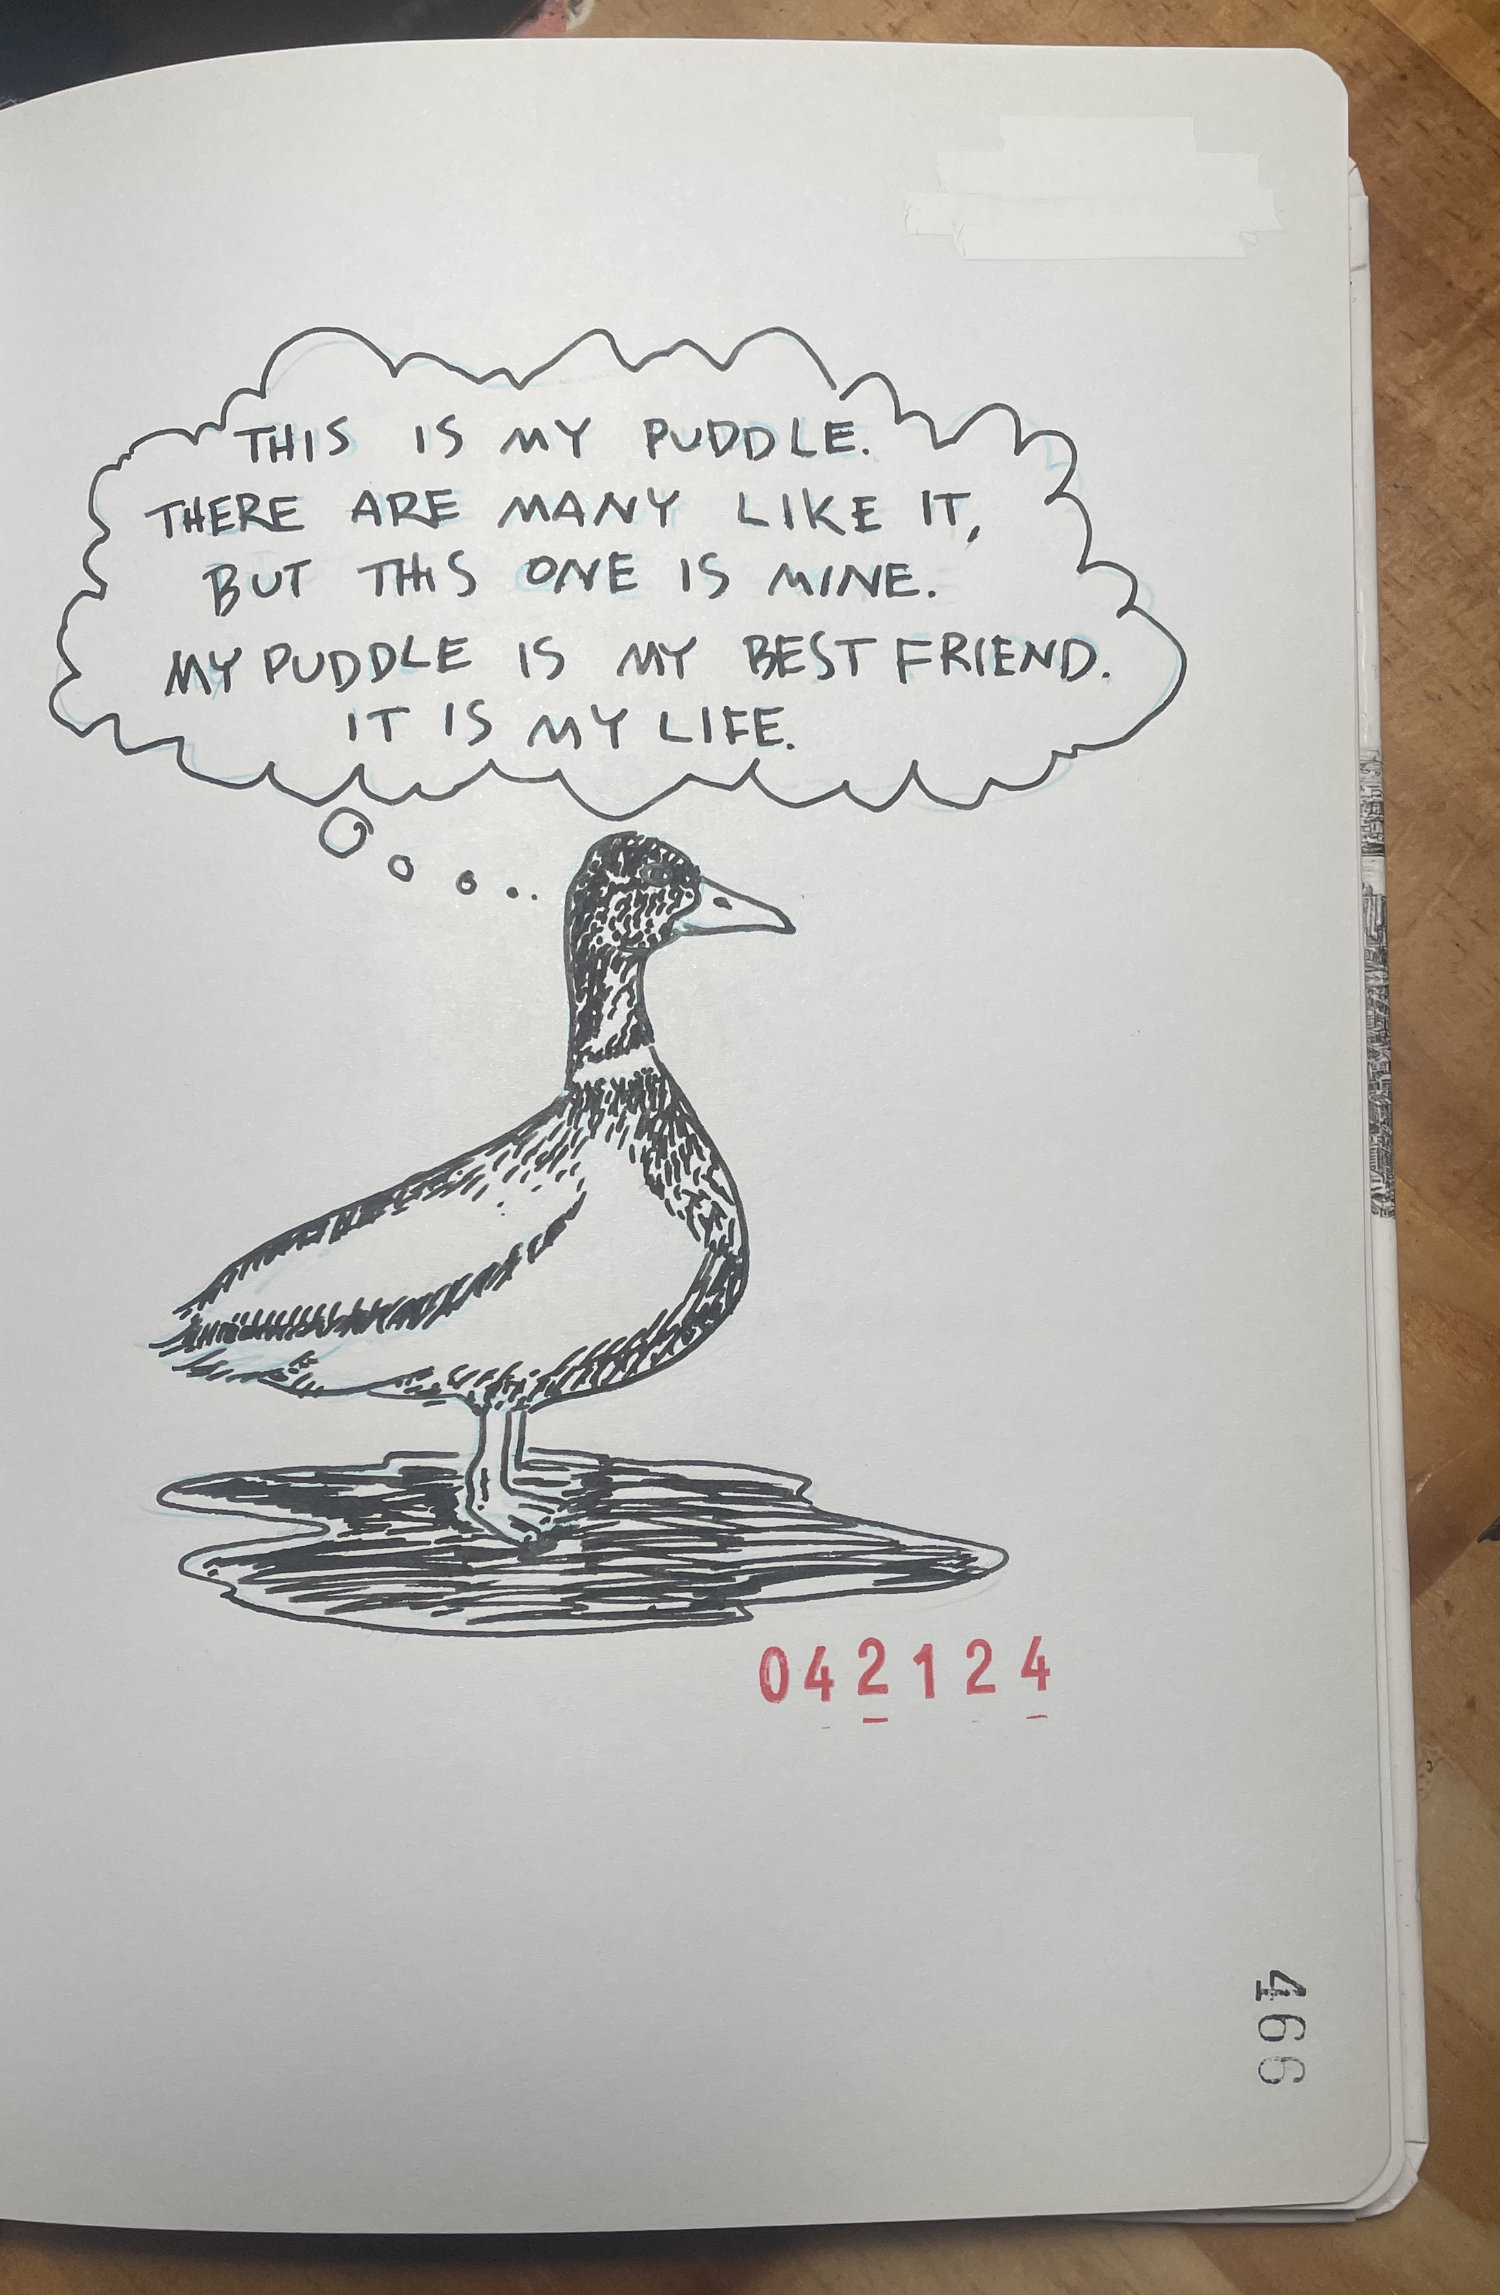 THIS IS MY PUDDLE.
THERE ARE MANY LIKE IT,
BUT THIS ONE IS MINE.
MY PUDDLE IS MY BEST FRIEND.
IT IS MY LIFE.
042124
466